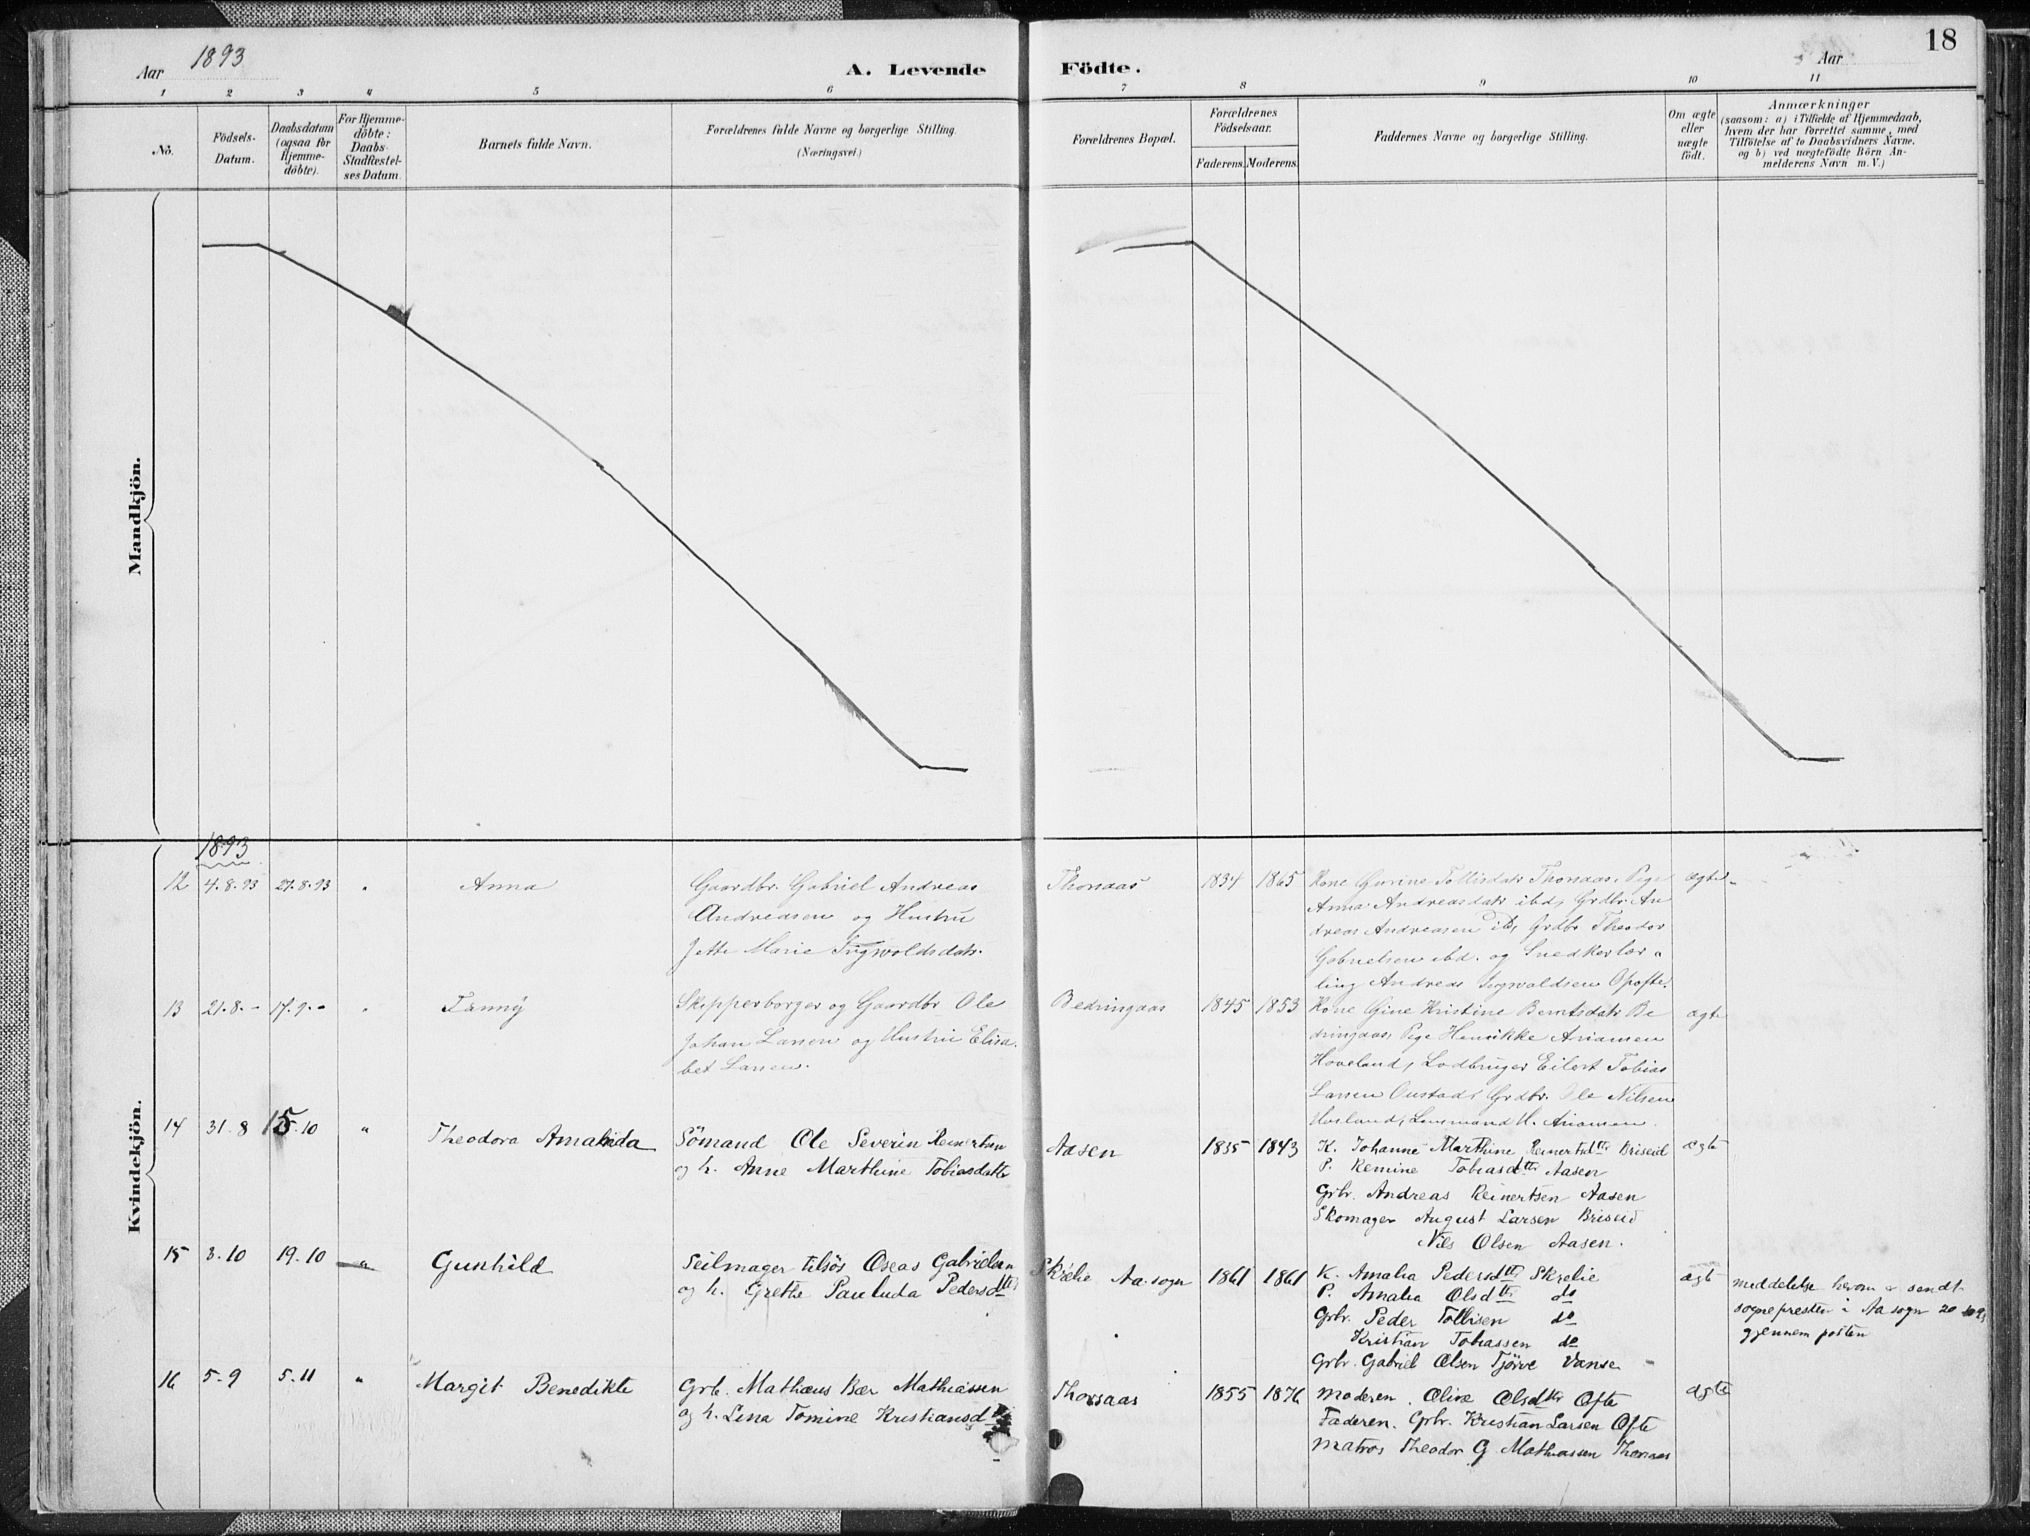 Aar 1893
A. Levende Födte.
Aar
18
1 2 3 4 5 6 7 8 9 10 11
No.
Födsels-
Datum.
Daabsdatum
(ogsaa for
Hjemme-
döbte).
For Hjemme-
döbte:
Daabs-
Stadfæstel-
ses Datum.
Barnets fulde Navn.
Forældrenes fulde Navne og borgerlige Stilling.
(Næringsvei.)
Forældrenes Bopæl.
Forældrenes
Födselsaar.
Faderens. Moderens.
Faddernes Navne og borgerlige Stilling.
Om ægte
eller
uægte
födt.
Anmærkninger
(saasom: a) i Tilfælde af Hjemmedaab,
hvem der har forrettet samme, med
Tilföielse af to Daabsvidners Navne,
og b) ved uægtefödte Börn An-
melderens Navn m. V.)
Mandkjön.
Kvindekjön.
1893
12 4.8.93 27.8.93 " Anna
Gaardbr. Gabriel Andreas
Andreasen og Hustru
Jette Marie Sigvoldsdatr.
Thorsaas 1834 1865
Kone Gurine Tollisdatr Thorsaas, Pige
Anna Andreasdatr ibd, Grdbr. An
dreas Andreasen ibd, Grdbr Theodor
Gabrielsen ibd. og Snedkerlær-
ling Andreas Sigvaldsen Opofte.
ægte
13 21.8.- 17.9.- " Fanny
Skipperborger og Gaardbr Ole
Johan Larsen og Hustru Elisa
bet Larsen.
Bedringaas 1845 1853
Kone Gine Kristine Berntsdatr Be
dringaas, Pige Henrikke Ariansen
Hoveland, Lodbruger Eilert Tobias
Larsen Oustad, Grdbr. Ole Nilsen
Lensmand H. Ariansen.
ægte
14 31.8 15.10 " Theodora Amalinda
Sömand Ole Severin Reinertsen
og h. Anne Marthine Tobiasdatter
Aasen 1835 1843
K. Johanne Marthine Reinertsdtr Briseid
P. Remine Tobiasdtr Aasen
Grbr. Andreas Reinertsen Aasen
Skomager August Larsen Briseid
Nils Olsen Aasen.
ægte
15 3.10 19.10 " Gunhild
Seilmager tilsös Oseas Gabrielsen
og h. Grethe Paulinda Pedersdtr
Skrelie Aa sogn 1861 1861
K. Amalia Pedersdtr Skrelie
P. Amalia Olsdtr do
Grbr. Peder Tollisen do
Kristian Tobiassen do
Grbr. Gabriel Olsen Tjörve Vanse
ægte
meddelelse herom er sendt
sognepresten i Aa sogn 20
gjennem posten
16 5.9 5.11 " Margit Benedikte
Grb. Mathæus Bær Mathiassen
og h. Lina Tomine Kristiansdtr
Thorsaas 1855 1876
Moderen. Olive Olsdtr Ofte
Faderen. Grbr. Kristian Larsen Ofte
Matros Theodor G Mathiassen Thorsaas
ægte